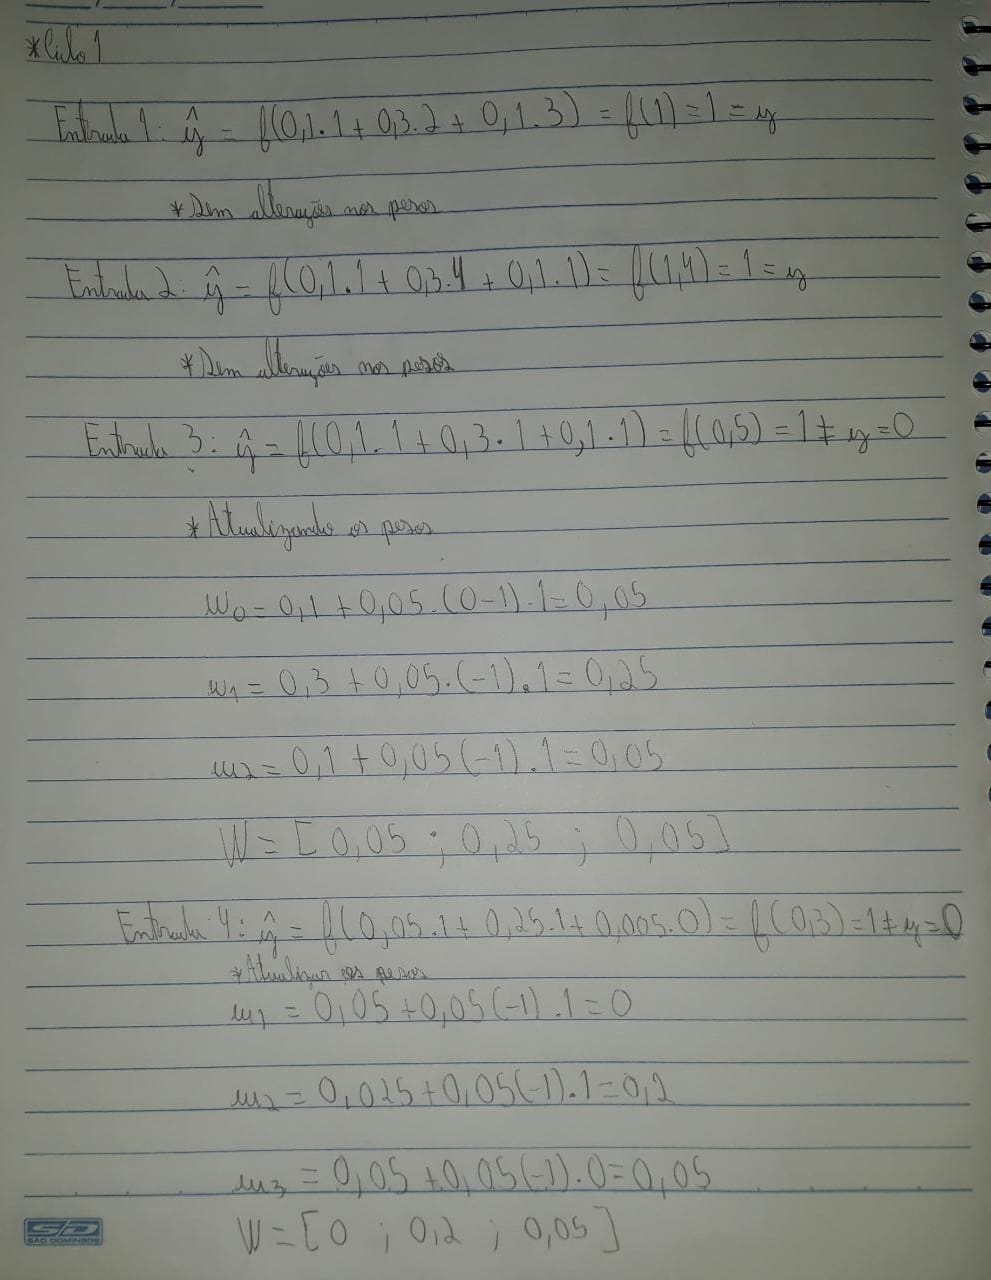 *Ciclo 1
Entrada 1: ŷ = f(0,1.1 + 0,3.2 + 0,1.3) = f(1) = 1 = y
* Sem alterações nos pesos
Entrada 2: ŷ = f(0,1.1 + 0,3.4 + 0,1.1) = f(1,4) = 1 = y
* Sem alterações nos pesos
Entrada 3: ŷ = f(0,1.1 + 0,3.1 + 0,1.1) = f(0,5) = 1 ≠ y = 0
* Atualizando os pesos
w0 = 0,1 + 0,05.(0-1).1 = 0,05
w1 = 0,3 + 0,05.(-1).1 = 0,25
w2 = 0,1 + 0,05(-1).1 = 0,05
W = [0,05 ; 0,25 ; 0,05]
Entrada 4: ŷ = f(0,05.1 + 0,25.1 + 0,005.0) = f(0,3) = 1 ≠ y = 0
*Atualizar os pesos
w1 = 0,05 + 0,05(-1).1 = 0
w2 = 0,025 + 0,05(-1).1 = 0,2
w3 = 0,05 + 0,05(-1).0 = 0,05
W = [0 ; 0,2 ; 0,05]
SD
SÃO DOMINGOS